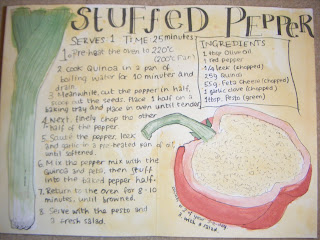 STUFFED PEPPER
SERVES 1 TIME: 25 minutes
1. Pre-heat the oven to 220°C
(200°C Fan)
2. Cook Quinoa in a pan of
boiling water for 10 minutes and
drain.
3. Meanwhile, cut the pepper in half,
scoop out the seeds. Place 1 half on a
baking tray and place in oven until tender
4. Next, finely chop the other
half of the pepper
5. Sauté the pepper, leek
and garlic in a pre-heated pan of oil
until softened.
6. Mix the pepper mix with the
Quinoa and feta, then stuff
into the baked pepper half.
7. Return to the oven for 8-10
minutes, until browned.
8. Serve with the pesto and
a fresh salad.
INGREDIENTS
1 tbsp Olive Oil
1 red pepper
1/4 leek (chopped)
25g Quinoa
55g Feta Cheese (chopped)
1 garlic clove (chopped)
1 tbsp. Pesto (green)
of your
with a salad.